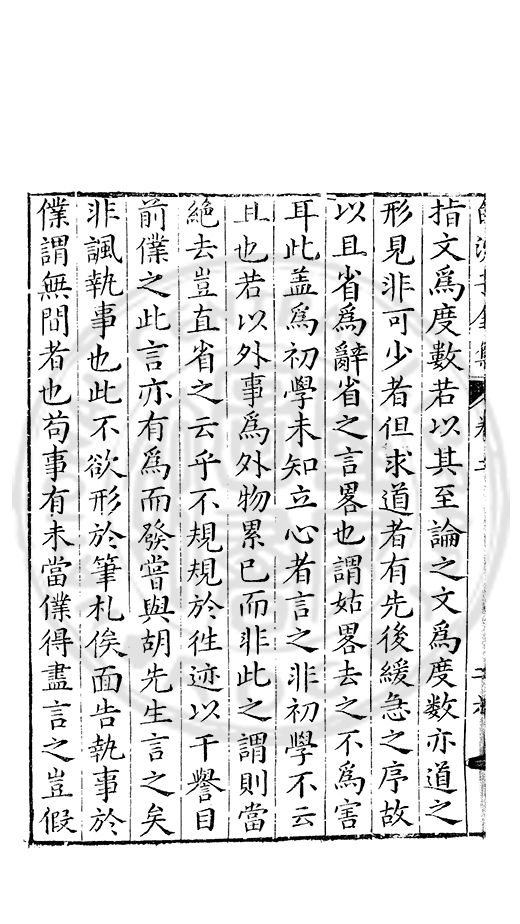 指文爲度數若以其至論之文爲度數亦道之
形見非可少者但求道者有先後緩急之序故
以且省爲辭省之言畧也謂姑畧去之不爲害
耳此盖爲初學未知立心者言之非初學不云
且也若以外事爲外物累已而非此之謂則當
絶去豈直省之云乎不規規於徃迹以干譽目
前僕之此言亦有爲而發嘗與胡先生言之矣
非諷執事也此不欲形於筆札俟面告執事於
僕謂無間者也苟事有未當僕得盡言之豈假